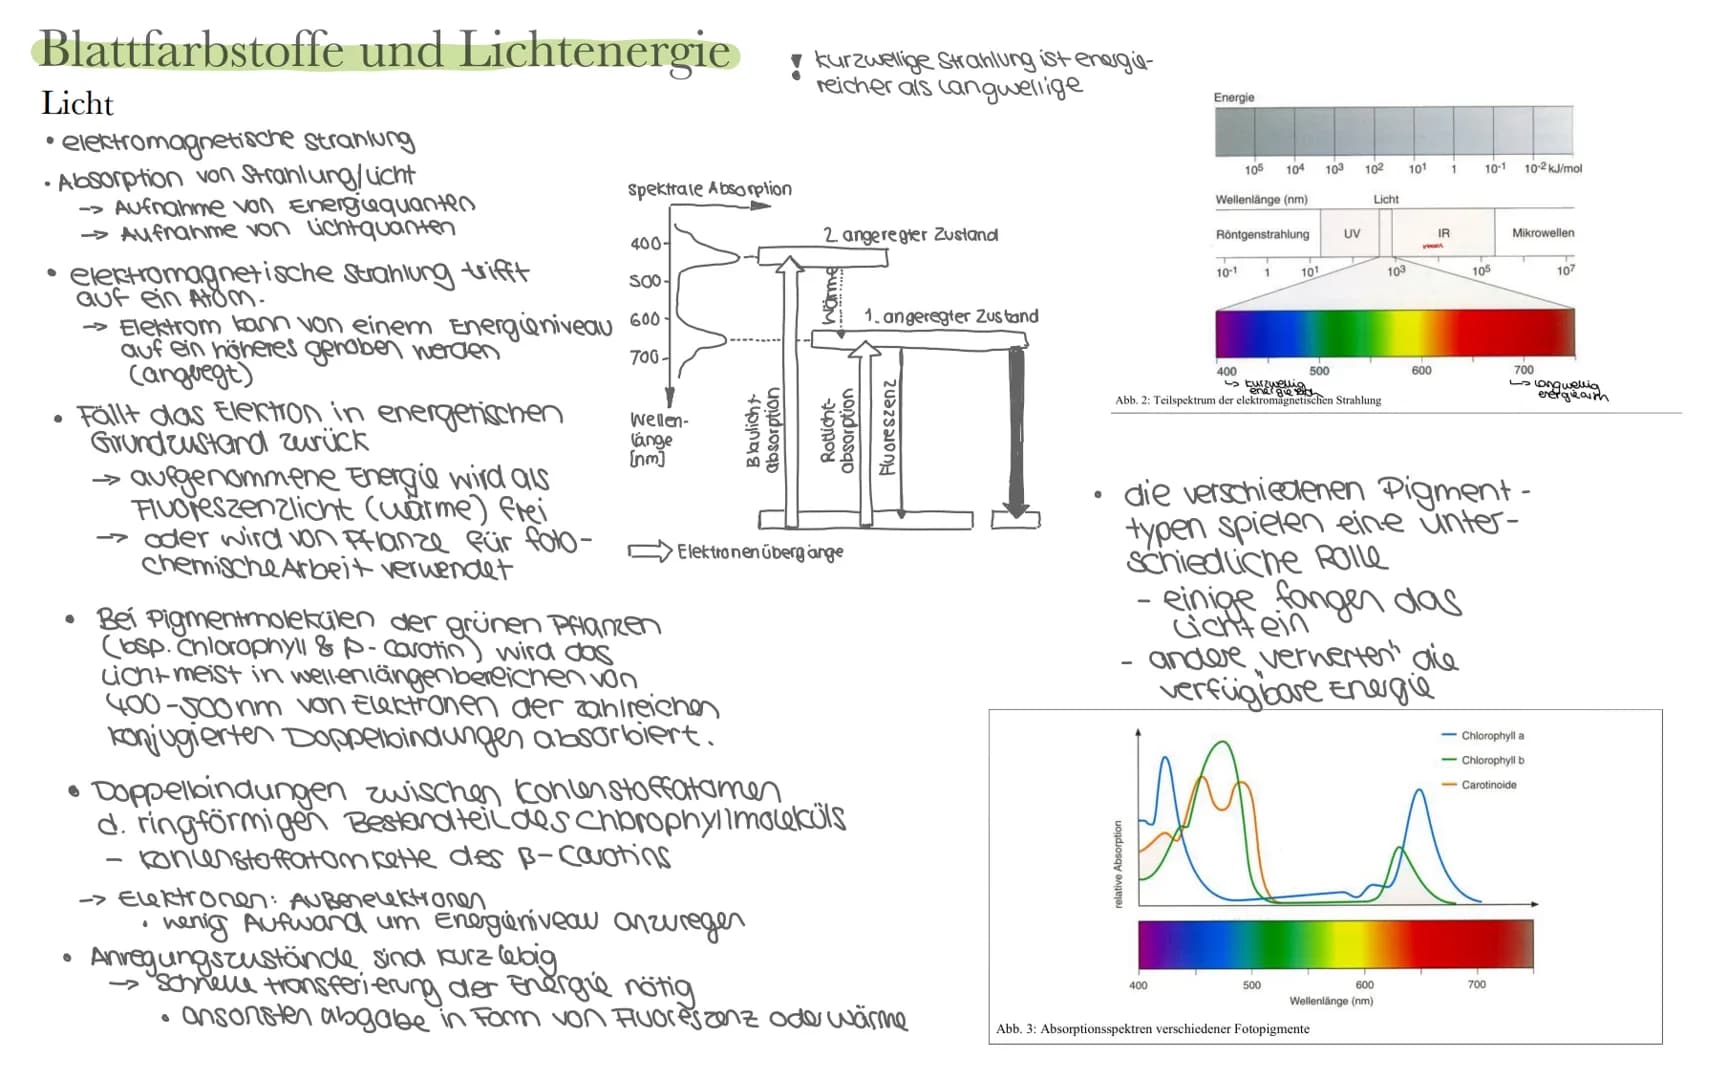 Blattfarbstoffe und Lichtenergie
! kurzwellige Strahlung ist energie-
reicher als langwellige
Licht
• elektromagnetische Strahlung
• Absorption von Strahlung/Licht
-> Aufnahme von Energiequanten
-> Aufnahme von Lichtquanten
• elektromagnetische Strahlung trifft
auf ein Atom.
-> Elektrom kann von einem Energieniveau
auf ein höheres gehoben werden
(angeregt)
• Fällt das Elektron in energetischen
Grundzustand zurück
-> aufgenommene Energie wird als
Fluoreszenzlicht (wärme) frei
-> oder wird von Pflanze für foto-
chemische Arbeit verwendet
• Bei Pigmentmolekülen der grünen Pflanzen
(bsp. Chlorophyll & β-Carotin) wird das
Licht meist in wellenlängenbereichen von
400-500nm von Elektronen der zahlreichen
konjugierten Doppelbindungen absorbiert.
• Doppelbindungen zwischen Kohlenstoffatomen
d. ringförmigen Bestandteil des Chlorophyllmoleküls
- Kohlenstoffatomkette des β-Carotins
-> Elektronen: Außenelektronen
• wenig Aufwand um Energieniveau anzuregen
• Anregungszustände sind kurzlebig
-> Schnelle transferierung der Energie nötig
• ansonsten abgabe in Form von Fluoreszenz oder wärme
spektrale Absorption
400
500
600
700
Wellen-
länge
[nm]
2. angeregter Zustand
Wärme
1. angeregter Zustand
Blaulicht-
absorption
Rotlicht-
absorption
Fluoreszenz
Elektronenübergänge
Energie
10⁵ 10⁴ 10³ 10² 10¹ 1 10⁻¹ 10⁻² kJ/mol
Wellenlänge (nm) Licht
Röntgenstrahlung UV IR Mikrowellen
10⁻¹ 1 10¹ 10³ 10⁵ 10⁷
400 500 600 700
-> kurzwellig
energiereich
-> langwellig
energiearm
Abb. 2: Teilspektrum der elektromagnetischen Strahlung
• die verschiedenen Pigment-
typen spielen eine unter-
schiedliche Rolle
- einige fangen das
Licht ein
- andere „verwerten" die
verfügbare Energie
Chlorophyll a
Chlorophyll b
Carotinoide
relative Absorption
400 500 600 700
Wellenlänge (nm)
Abb. 3: Absorptionsspektren verschiedener Fotopigmente